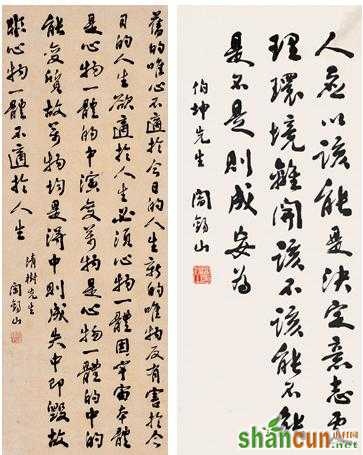 人應以該能是決定意志處
理環境離開該不該能不能
是不是則成妄為
伯坤先生 閻錫山
舊的唯心不適於今日的人生新的唯物反有害於今
日的人生欲適於人生必須心物一體因宇宙本體
是心物一體的中演變萬物是心物一體的中的
能變質故萬物均是得中則成失中即毀故
非心物一體不適於人生
清樹先生
閻錫山
山村网
shancun.net